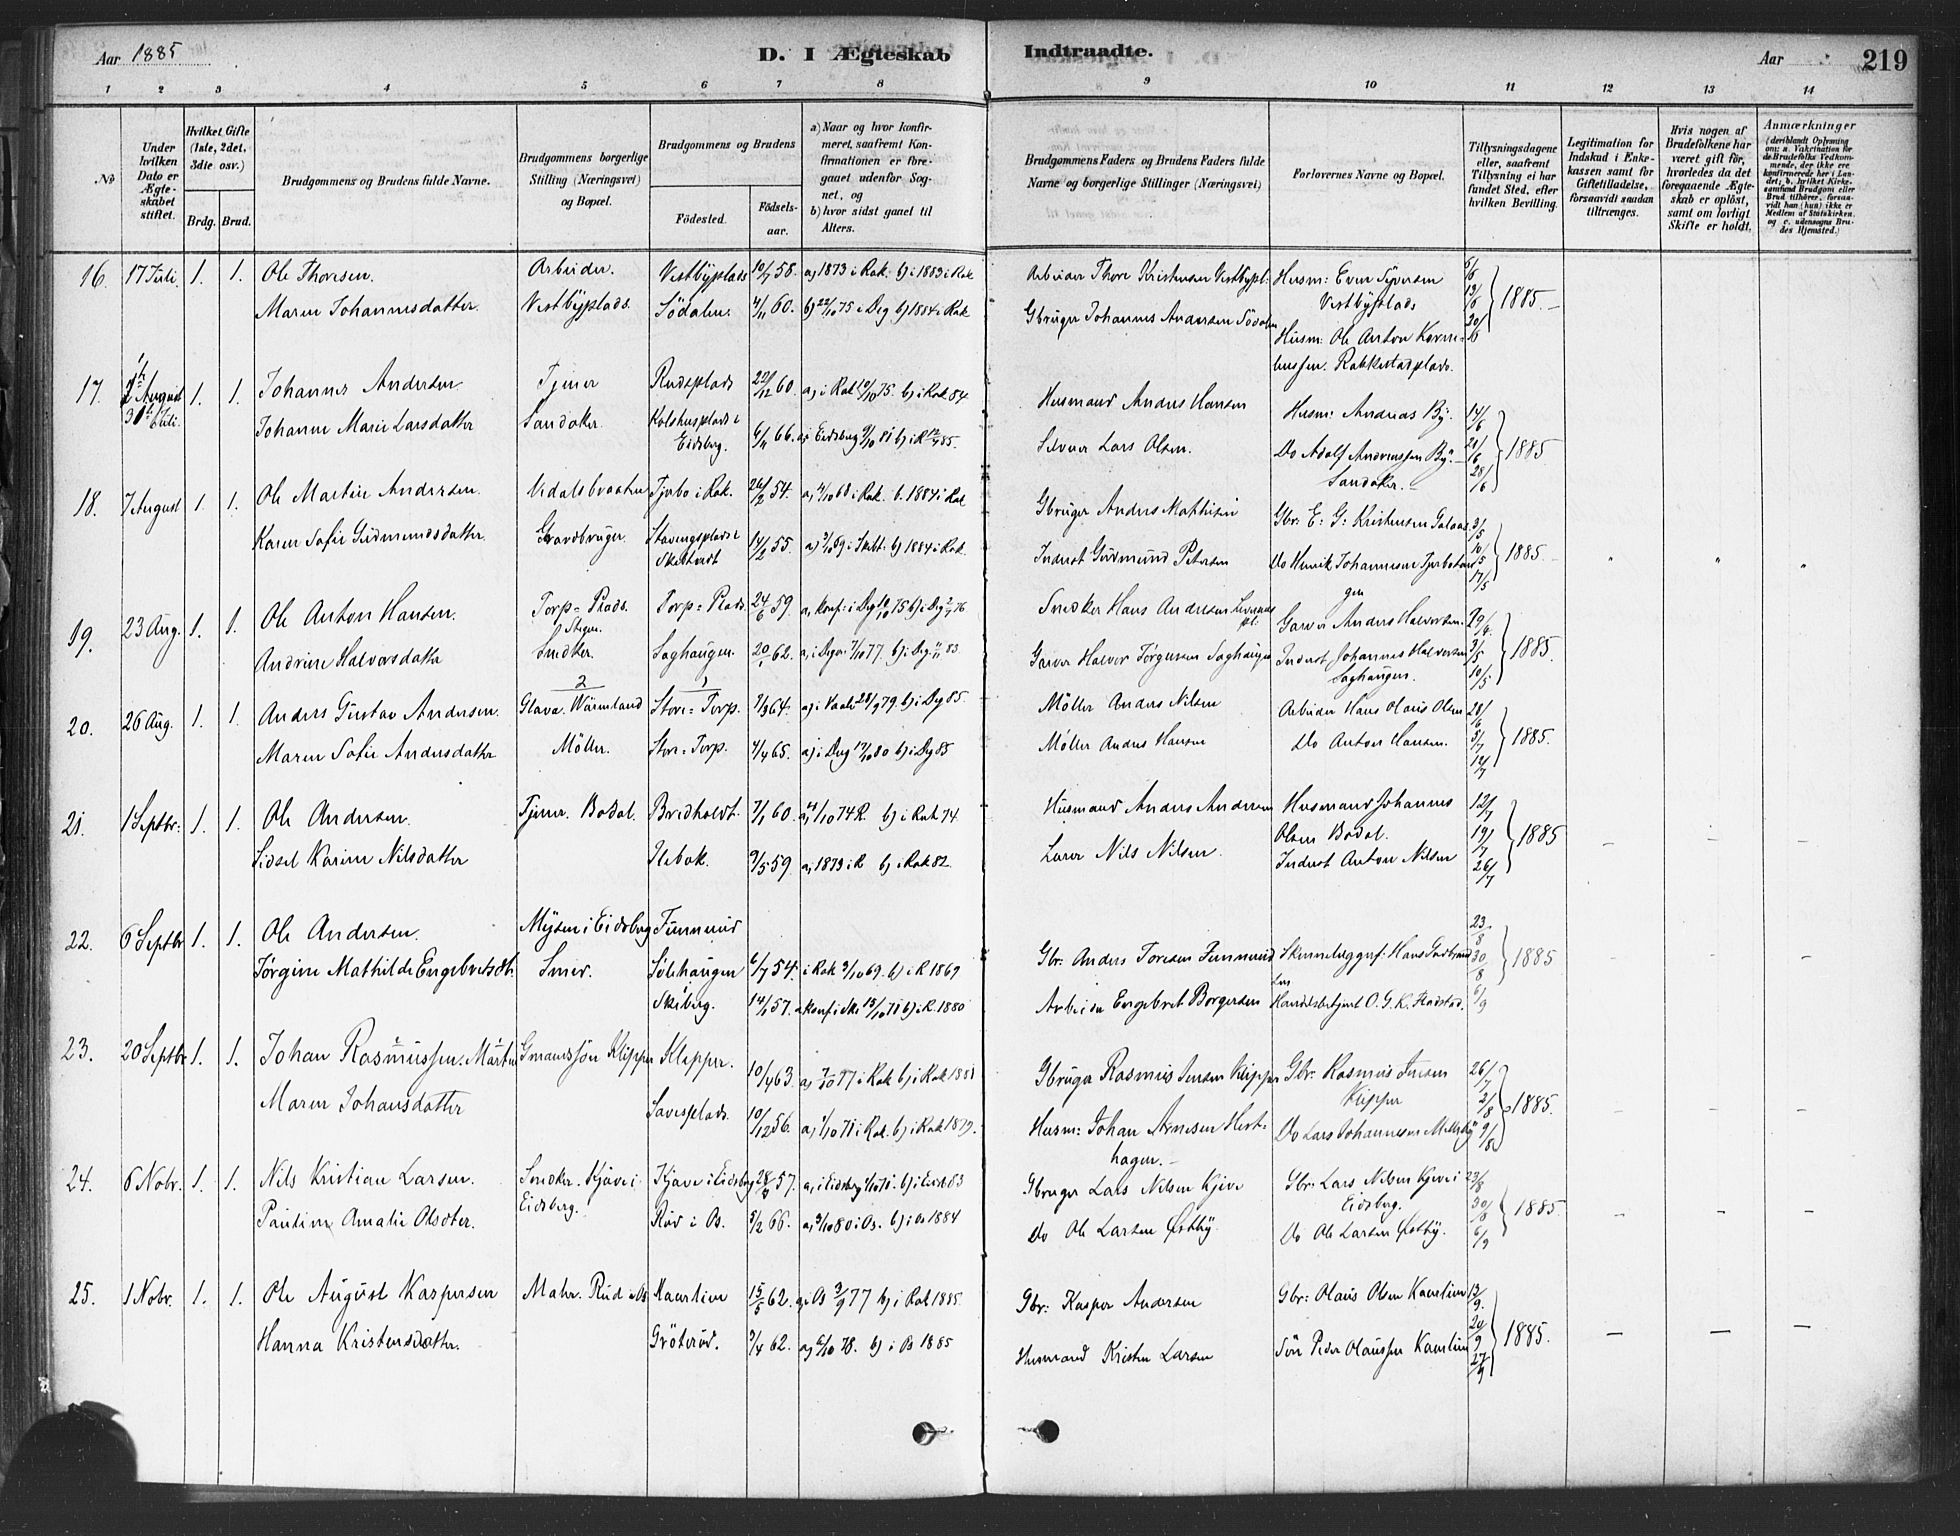 Aar 1885
D. I Ægteskab Indtraadte.
Aar
219
1 2 3 4 5 6 7 8 9 10 11 12 13 14
No
Under hvilken Dato er Ægteskabet stiftet.
Hvilket Gifte (1ste, 2det, 3die osv.)
Brdg. Brud.
Brudgommens og Brudens fulde Navne.
Brudgommens borgerlige Stilling (Næringsvei) og Bopæl.
Brudgommens og Brudens
Fødested. Fødselsaar.
a) Naar og hvor konfirmeret, saafremt Konfirmationen er foregaaet udenfor Sognet, og
b) hvor sidst gaaet til Alters.
Brudgommens Faders og Brudens Faders fulde Navne og borgerlige Stillinger (Næringsvei)
Forlovernes Navne og Bopæl.
Tillysningsdagene eller, saafremt Tillysning ei har fundet Sted, efter hvilken Bevilling.
Legitimation for Indskud i Enkekassen samt for Giftetilladelse, forsaavidt saadan tiltrænges.
Hvis nogen af Brudefolkene har været gift før, hvorledes da det foregaaende Ægteskab er opløst, samt om lovligt Skifte er holdt.
Anmærkninger
16 17 Juli. 1. 1. Ole Thoresen. Arbeider. Vestbyplads 10/7 58. a) 1873 i Rak. b) i 1883 i Rak Arbeider Thore Kristensen Vestbypl. Husm: Even Syversen 1885.
Maren Johannesdatter. Vestbyplads. Södalen. 4/11 60. b) 22/10 75 i Deg b) 1884 i Rak Gbruger Johannes Andersen Södalen Vestbyplads
Husm: Ole Anton
Rakkestadplads.
17. August 1. 1. Johannes Andersen Tjener Rudsplads 22/12 60. a) i Rak 10/10 75. b) i Rak 84 Husmand Anders Hansen Husm: Andreas By. 14/6
Johanne Marie Larsdatter Sandaker. Kolshusplads i Eidsberg. 6/11 66. a) Eidsberg 9/10 81 b) i R 85. Lars Olsen. Do Adolf Andreassen By. 21/6 1885
Sandaker. 28/6
18. 7 August 1. 1. Ole Martin Andersen. Vedalsbraaten Tjerbo i Rak. 26/2 54. a) 4/10 68 i Rak. b. 1884 i Rak Gbruger Anders Mathisen Gbr: E: G: Kristensen 3/5
Karen Sofie Gudmundsdatter. Gaardbruger. 14/2 55. a) 3/10 69 i Skibt. b) 1884 i Rak. Inderst Gudmund Petersen Do Henrik Johannesen 10/5 1885
17/5
19. 23 Aug. 1. 1. Ole Anton Hansen. Torp-Plads. Torp-Plads. 24/6 59. a) konf: i Deg 10/10 75 b) i Deg 76 Snedker Hans Andersen Garver Anders Halvorsen. 19/4.
Andrine Halvorsdatter Snedker. Saghaugen. 20/1 62. a) i Deg 7/10 77. b) i Deg 83 Garver Halvor Jørgensen Saghaugen Inderst Johannes Halvorsen 3/5 1885.
Saghaugen. 10/5
20. 26 Aug. 1. 1. Anders Gustav Andersen. Glava. Wärmland Store-Torp. 7/3 64. a) i Vaaler 28/9 79 b) i Deg 85. Møller Anders Nilsen Arbeider Hans Olaus Olsen 28/6
Maren Sofie Andersdatter Möller. Store-Torp. 4/4 65. a) i Deg 17/10 80 b) i Deg 85 Møller Anders Hansen Do Anton Hansen. 5/7 1885.
12/7
21. 1 Septbr: 1. 1. Ole Andersen. Tjener Bodal. Bredholdt. 7/1 60. a) 4/10 74 R. b) i Rak 74 Husmand Anders Andersen Husmand Johannes Olsen Bodal. 12/7 19/7 1885
Sidsel Karine Nilsdatter Ilebak. 9/5 59. a) 1873 i R b) i Rak 82. Nils Nilsen. Inderst Anton Nilsen 26/7
22. 6 Septbr 1. 1. Ole Andersen. Mysen i Eidsberg Funnerud 6/7 54. i Rak 3/10 69. b) i R. 1869 Gbr: Anders Toresen Funnerud 23/8 30/8 1885
Jörgine Mathilde Engebretsdt. Smed. Sölehaugen Skiberg. 14/1 57. a konf. i Ski 13/10 71 b) i R. 1880 Arbeider Engebret Borgersen Handelsbetjent O. G. K. 6/9
23. 20 Septbr 1. 1. Johan Rasmussen. Gmandssön Klipper Klipper. 10/4 63. a) 7/10 77 i Rak b) i Rak 1881 Gbruger Rasmus Jensen Klipper Gbr: Rasmus Jensen Klipper 26/7 2/8 1885.
Maren Johansdatter Savesplads. 10/12 56. a) 1/10 71 i Rak. b) i Rak 1879. Husm: Johan Arnesen Do Lars Johannesen 9/8
24. 6 Nobr. 1. 1. Nils Kristian Larsen. Snedker. Kjøve i Eidsberg. Kjøve i Eidsberg 28/ 57. a) i Eidsberg b) i Eidsb 83 Gbruger Lars Nilsen Kjøve Gbr: Lars Nilsen Kjøve i Eidsberg. 23/8
Pauline Amalie Olsdter. Röd i Os. 5/2 66. a) 3/10 80 i Os. b) i Os 1884 Do Ole Larsen Østby. Do Ole Larsen Østby. 30/8 6/9 1885
25. 1 Nobr. 1. 1. Ole August Kaspersen Maler. Rud i Os 15/5 62. a) i Os 3/9 77 b) i Rak 1885. Gbr: Kasper Andersen Gbr: Olaus Olsen 13/9. 20/9
Hanna Kristensdatter. Gröterud. 9/4 62. a) 6/10 78. b) i Os 1885 Husmand Kristen Larsen Sön Peder Olaussen 27/9 1885.